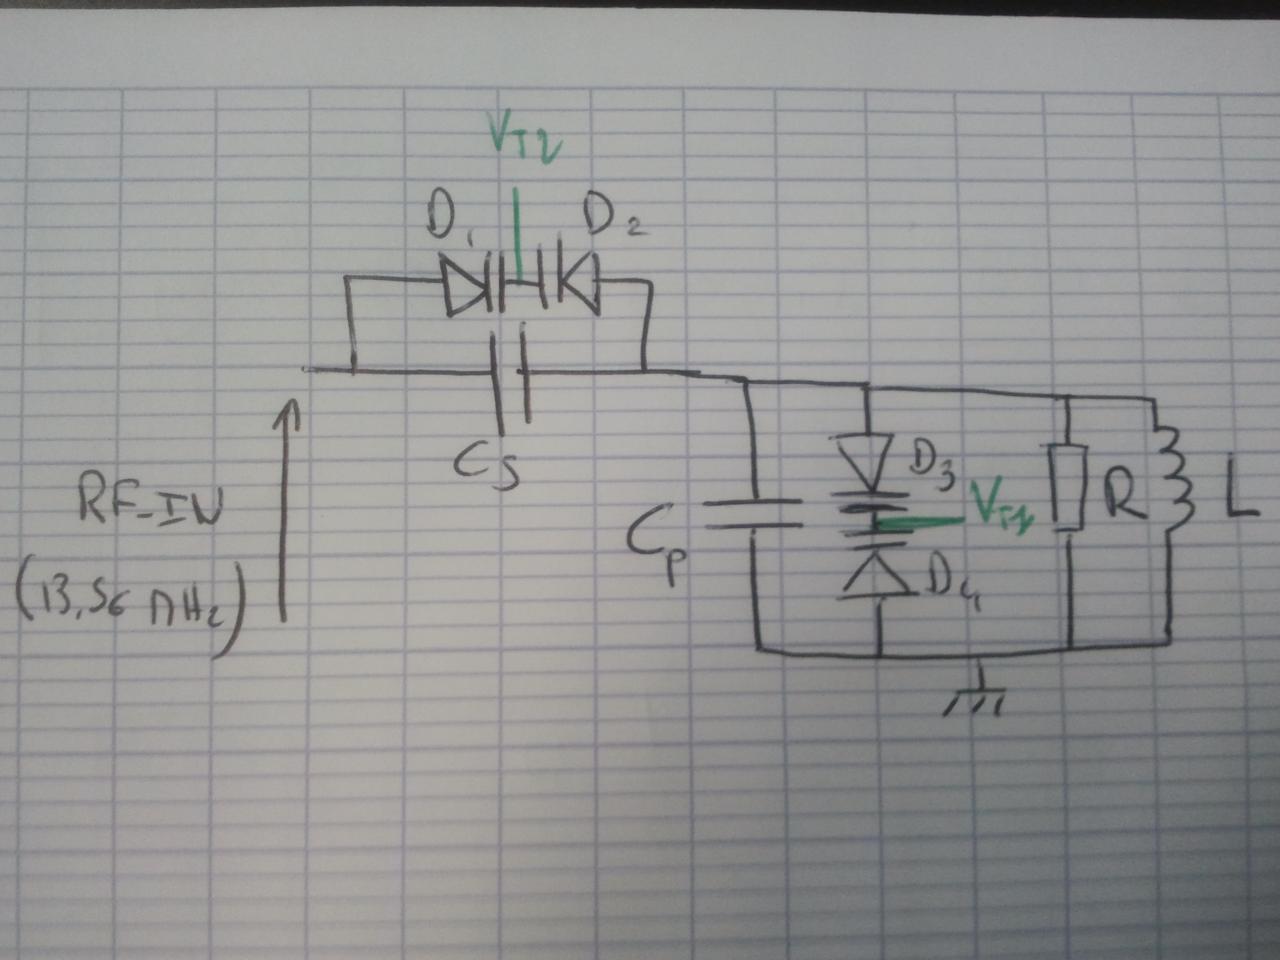 VT2
D1
D2
CS
RF_IN
(13,56 MHz)
Cp
D3
VT1
D4
R
L